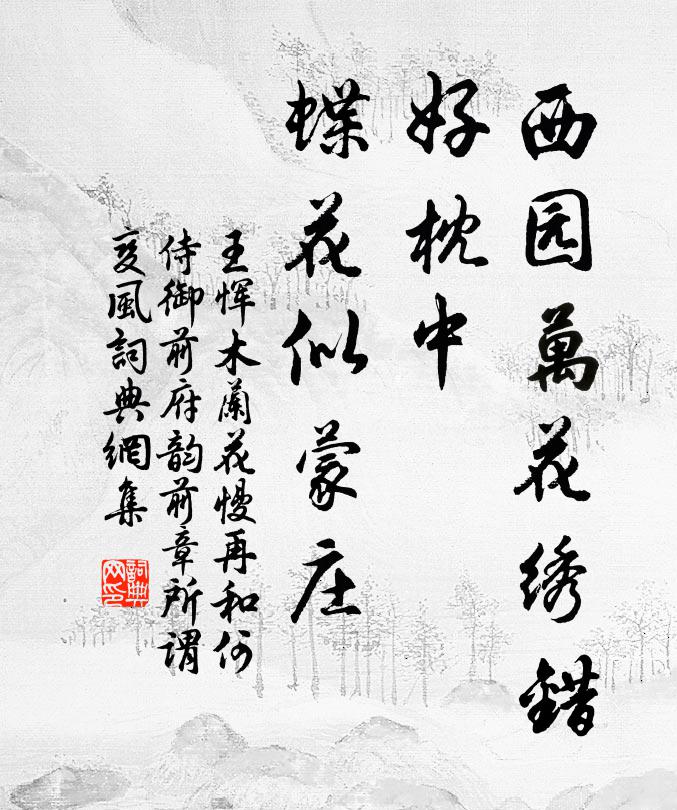 西园萬花绣錯
好枕中
蝶花似蒙庄
王恽木蘭花慢再和何
侍御前府韵前章所谓
变風詞典網集
詞典网印